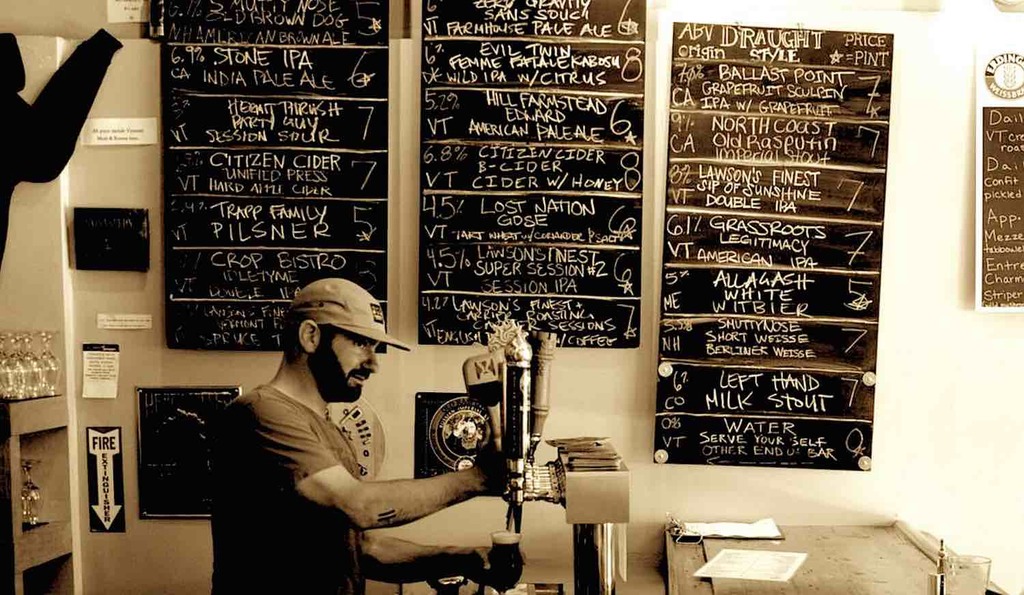 MUTTY NOSE 5
OLD BROWN DOG
NH AMERICAN BROWN ALE
6.9% STONE IPA 6
CA INDIA PALE ALE
HERMIT THRUSH
PARTY GUY 7
VT SESSION SOUR
CITIZEN CIDER
UNIFIED PRESS 7
VT HARD CIDER
TRAPP FAMILY 5
VT PILSNER
CROP BISTRO
IDLETYME
VT DOUBLE IPA
LAWSON'S FINEST
VERMONT
SPRUCE
ZERO GRAVITY
SANS SOUCI 6
VT FARMHOUSE PALE ALE
6% EVIL TWIN
FEMME FATALE KABOSU 8
WILD IPA W/CITRUS
5.2% HILL FARMSTEAD
EDWARD 6
VT AMERICAN PALE ALE
6.8% CITIZEN CIDER
B-CIDER 8
VT CIDER W/ HONEY
4.5% LOST NATION
GOSE 6
VT TART WHEAT W/CORIANDER & SALT
4.5% LAWSON'S FINEST
SUPER SESSION #2 6
VT SESSION IPA
4.2% LAWSON'S FINEST +
ROASTING
SESSIONS 7
VT W/COFFEE
ABV DRAUGHT PRICE
Origin STYLE =PINT
BALLAST POINT
GRAPEFRUIT SCULPIN 7
CA IPA W/ GRAPEFRUIT
9% NORTH COAST
Old RASPUTIN 7
CA Imperial Stout
8% LAWSON'S FINEST
SIP OF SUNSHINE 7
VT DOUBLE IPA
6.1% GRASSROOTS
LEGITIMACY 7
VT AMERICAN IPA
5% ALLAGASH
WHITE 5
ME WITBIER
SMUTTYNOSE
SHORT WEISSE 7
NH BERLINER WEISSE
6% LEFT HAND 7
CO MILK STOUT
0% WATER
SERVE YOUR SELF 0
VT OTHER END OF BAR
ERDING
WEISSBR
Dail
VT cr
roas
Dai
Confit
pickled
App.
Mezze
tabboule
Entre
Charm
Striper
FIRE
EXTINGUISHER